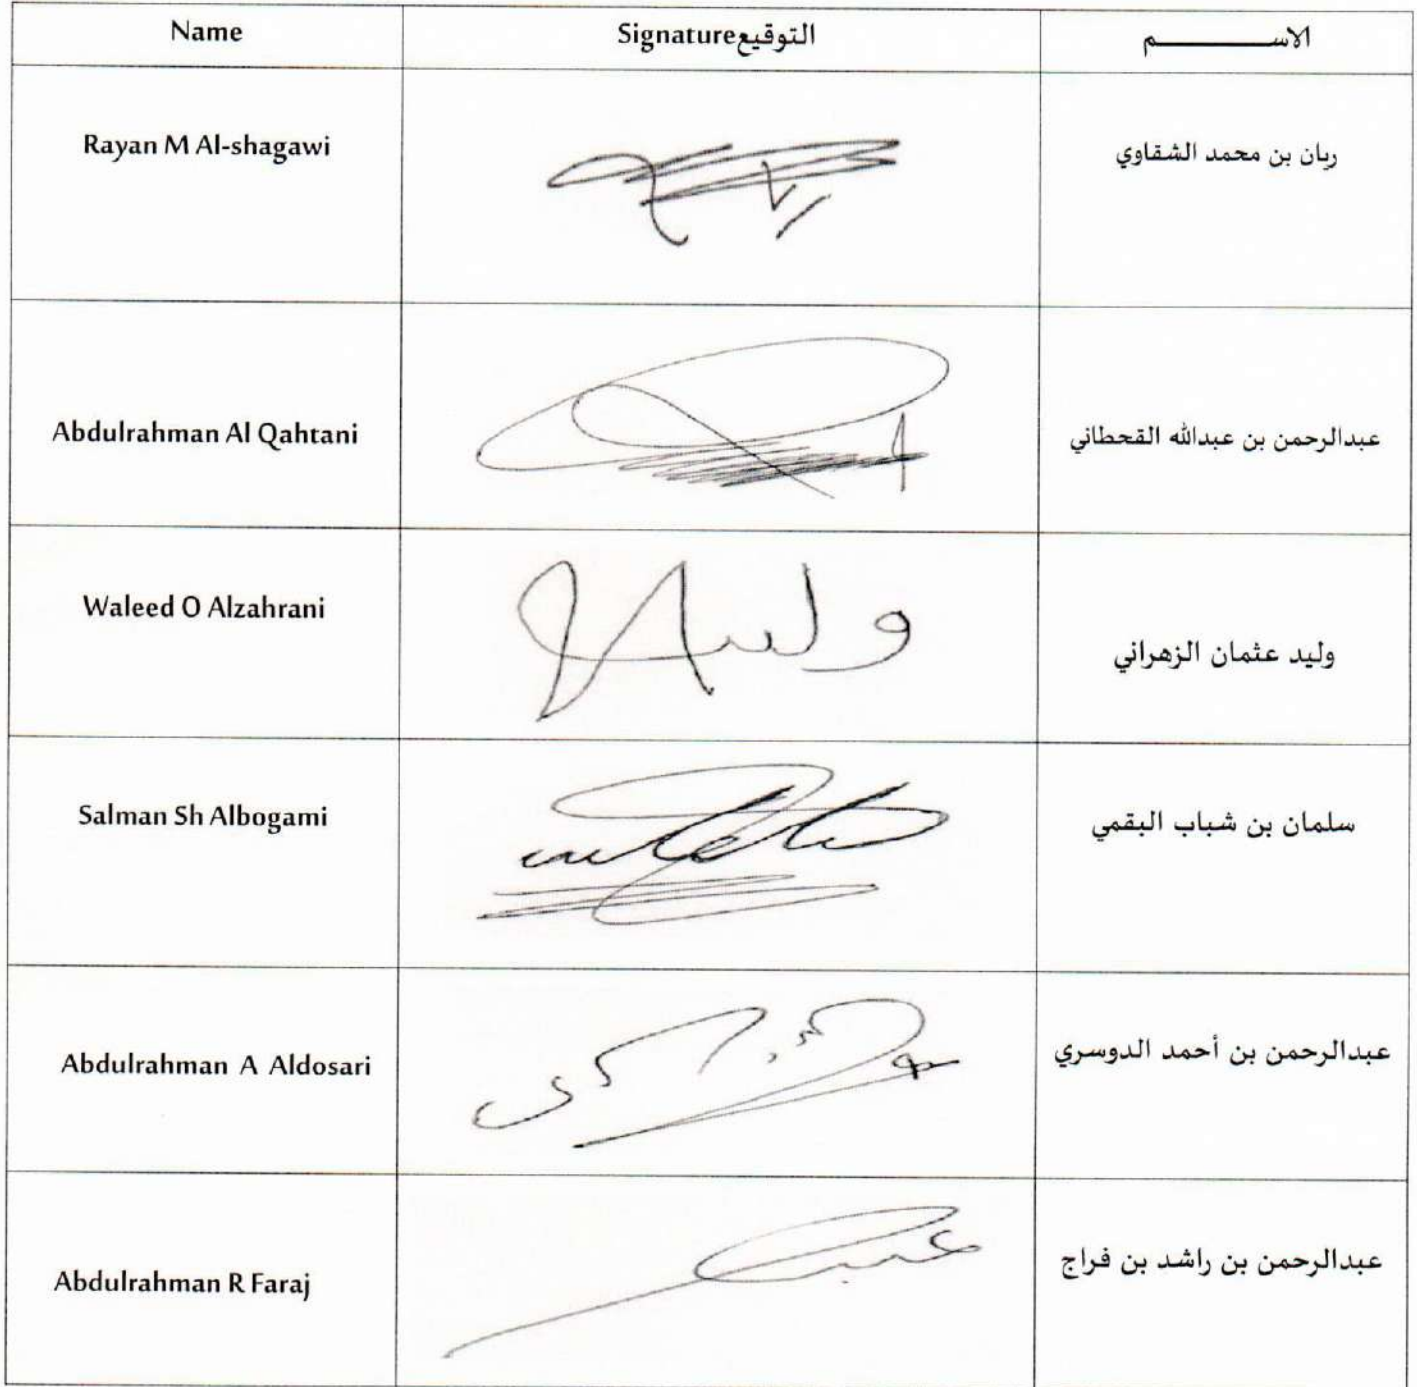 Name التوقيعSignature الاســـــــم
Rayan M Al-shagawi ريان بن محمد الشقاوي
Abdulrahman Al Qahtani عبدالرحمن بن عبدالله القحطاني
Waleed O Alzahrani وليد عثمان الزهراني
Salman Sh Albogami سلمان بن شباب البقمي
Abdulrahman A Aldosari عبدالرحمن بن أحمد الدوسري
Abdulrahman R Faraj عبدالرحمن بن راشد بن فراج